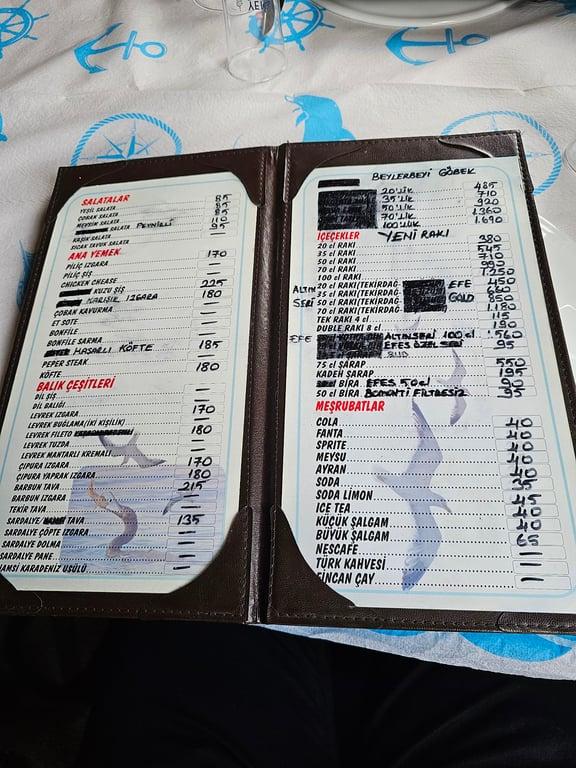 SALATALAR
YEŞİL SALATA 85
ÇOBAN SALATA 85
MEVSİM SALATA 85
SALATA PEYNİRLİ 110
KAŞIK SALATA 95
SICAK TAVUK SALATA —
ANA YEMEK
PİLİÇ IZGARA 170
PİLİÇ ŞİŞ —
CHICKEN CHEASE —
KUZU ŞİŞ 225
KARIŞIK IZGARA 180
ÇOBAN KAVURMA —
ET SOTE —
BONFİLE —
BONFİLE SARMA —
KAŞARLI KÖFTE 185
PEPER STEAK —
KÖFTE 180
BALIK ÇEŞİTLERİ
DİL ŞİŞ —
DİL BALIĞI —
LEVREK IZGARA 170
LEVREK BUĞLAMA(İKİ KİŞİLİK) —
LEVREK FILETO 180
LEVREK TUZDA —
LEVREK MANTARLI KREMALI —
ÇIPURA IZGARA 170
ÇIPURA YAPRAK IZGARA 180
BARBUN TAVA 215
BARBUN IZGARA —
TEKİR TAVA —
SARDALYE/ TAVA 135
SARDALYE ÇÖPTE IZGARA —
SARDALYE DOLMA —
SARDALYE PANE —
HAMSİ KARADENİZ USULÜ —
BEYLERBEYİ GÖBEK
20'LİK 485
35'LİK 710
50'LİK 920
70'LİK 1.360
100'LÜK 1.690
İÇEÇEKLER YENİ RAKI
20 cl RAKI 380
35 cl RAKI 545
50 cl RAKI 710
70 cl RAKI 990
100 cl RAKI 1.250
20 cl RAKI(TEKİRDAĞ 450
ALTIN 35 cl RAKI(TEKİRDAĞ EFE 660
SERİ 50 cl RAKI(TEKİRDAĞ GOLD 850
70 cl RAKI(TEKİRDAĞ 1.180
TEK RAKI 4 cl 115
DUBLE RAKI 8 cl 190
EFE ALTINSERİ 100 cl 1.560
EFES ÖZEL SERİ 95
75 cl ŞARAP 550
KADEH ŞARAP 195
BİRA EFES 50 cl 90
50 cl BİRA BOMONTİ FİLTRESİZ 95
MEŞRUBATLAR
COLA 40
FANTA 40
SPRITE 40
MEYSU 40
AYRAN 40
SODA 35
SODA LİMON
ICE TEA 45
KÜÇÜK ŞALGAM 40
BÜYÜK ŞALGAM 65
NESCAFE —
TÜRK KAHVESİ —
FİNCAN ÇAY —